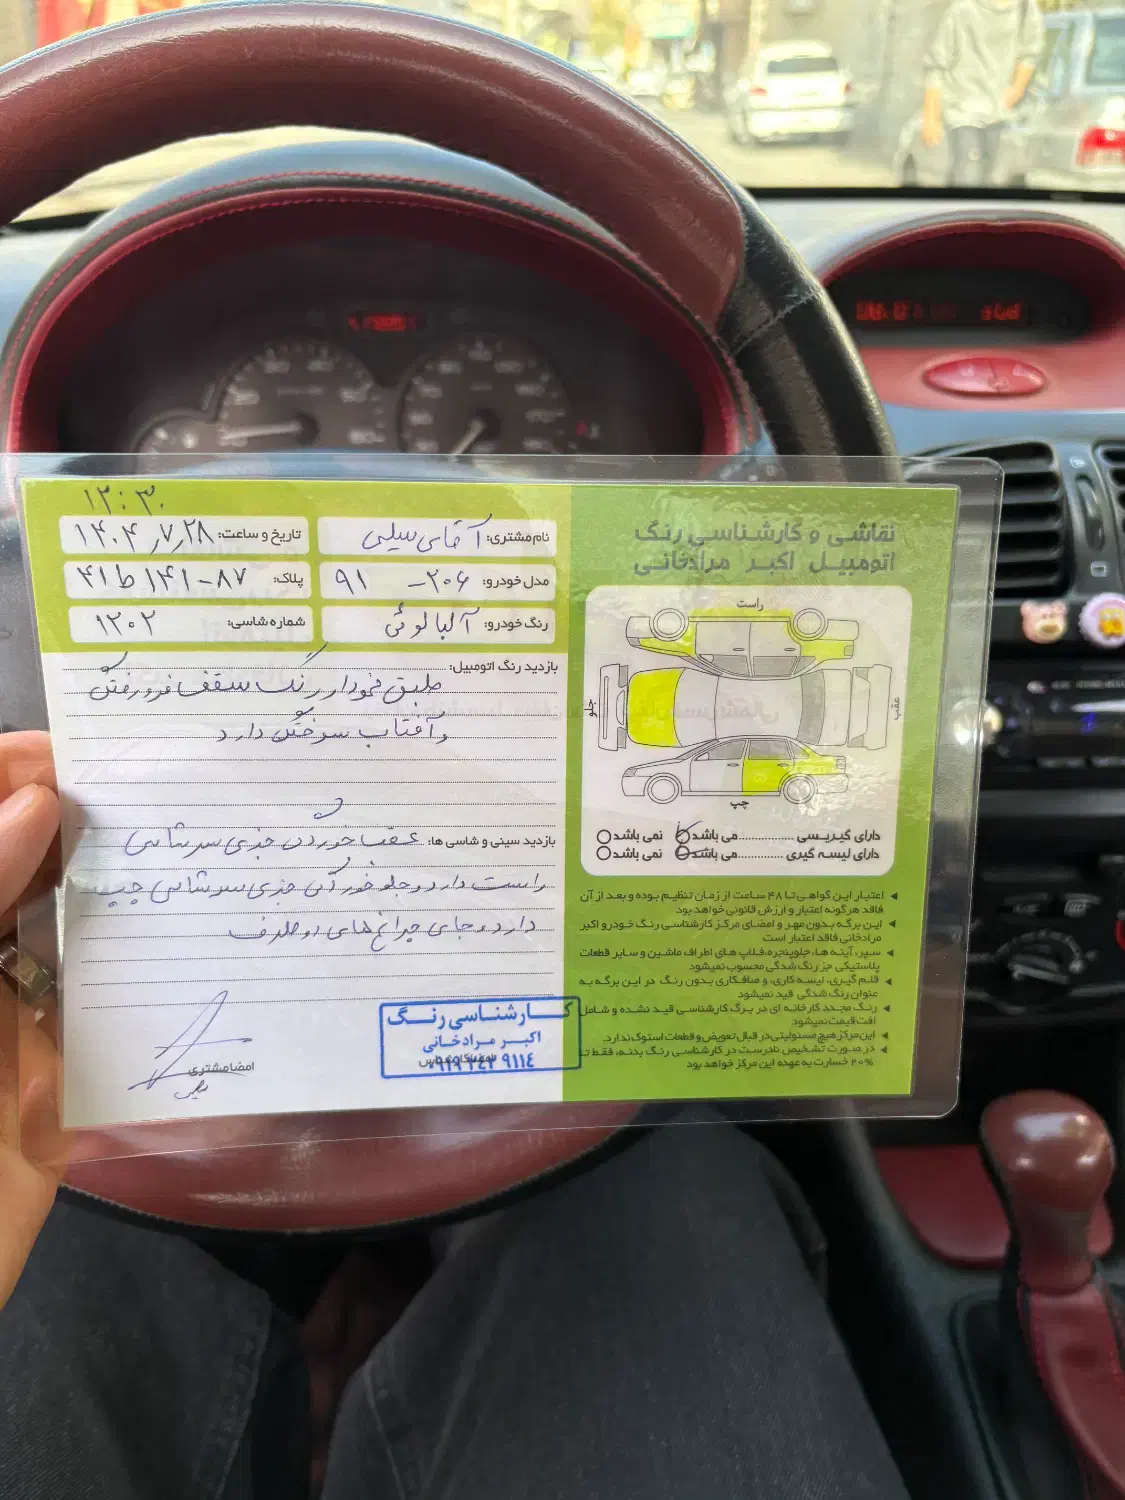 ۱۲:۳۰
نام مشتری: آقای سیلی
تاریخ و ساعت: ۱۴۰۴٫۷٫۲۸
مدل خودرو: ۲۰۶ - ۹۱
پلاک: ۸۷-۱۴۱ ط ۴۱
رنگ خودرو: آلبالوئی
شماره شاسی: ۱۲۰۲
بازدید رنگ اتومبیل:
طبق نمودار رنگ سقف فرورفتگی
و آفتاب سوختگی دارد
بازدید سینی و شاسی ها: عقب خوردگی جزی سرشاسی
راست دارد و جلو خوردگی جزی سرشاسی چپ
دارد و جای چراغ های دو طرف
امضا مشتری
کارشناسی رنگ
اکبر مرادخانی
۰۹۱۹ ۲۴۲ ۹۱۱۴
نقاشی و کارشناسی رنگ
اتومبیل اکبر مرادخانی
راست
جلو
عقب
چپ
دارای گیریسی ............... می باشد نمی باشد
دارای لیسه گیری ............. می باشد نمی باشد
اعتبار این گواهی تا ۴۸ ساعت از زمان تنظیم بوده و بعد از آن
فاقد هرگونه اعتبار و ارزش قانونی خواهد بود
این برگه بدون مهر و امضای مرکز کارشناسی رنگ خودرو اکبر
مرادخانی فاقد اعتبار است
سپر، آینه ها، جلوپنجره، فلاپ های اطراف ماشین و سایر قطعات
پلاستیکی جز رنگ شدگی محسوب نمیشود
قلم گیری، لیسه کاری، و صافکاری بدون رنگ در این برگه به
عنوان رنگ شدگی قید نمیشود
رنگ مجدد کارخانه ای در برگ کارشناسی قید نشده و شامل
افت قیمت نمیشود
این مرکز هیچ مسئولیتی در قبال تعویض و قطعات استوک ندارد.
در صورت تشخیص نادرست در کارشناسی رنگ بدنه، فقط تا
۲۰% خسارت به عهده این مرکز خواهد بود